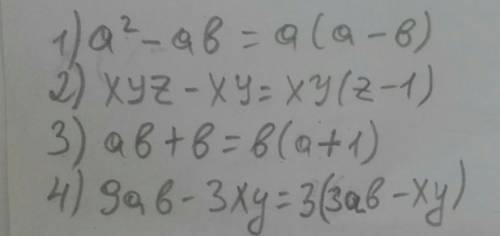 1) a² - ab = a(a - b)
2) xyz - xy = xy(z - 1)
3) ab + b = b(a + 1)
4) 9ab - 3xy = 3(3ab - xy)